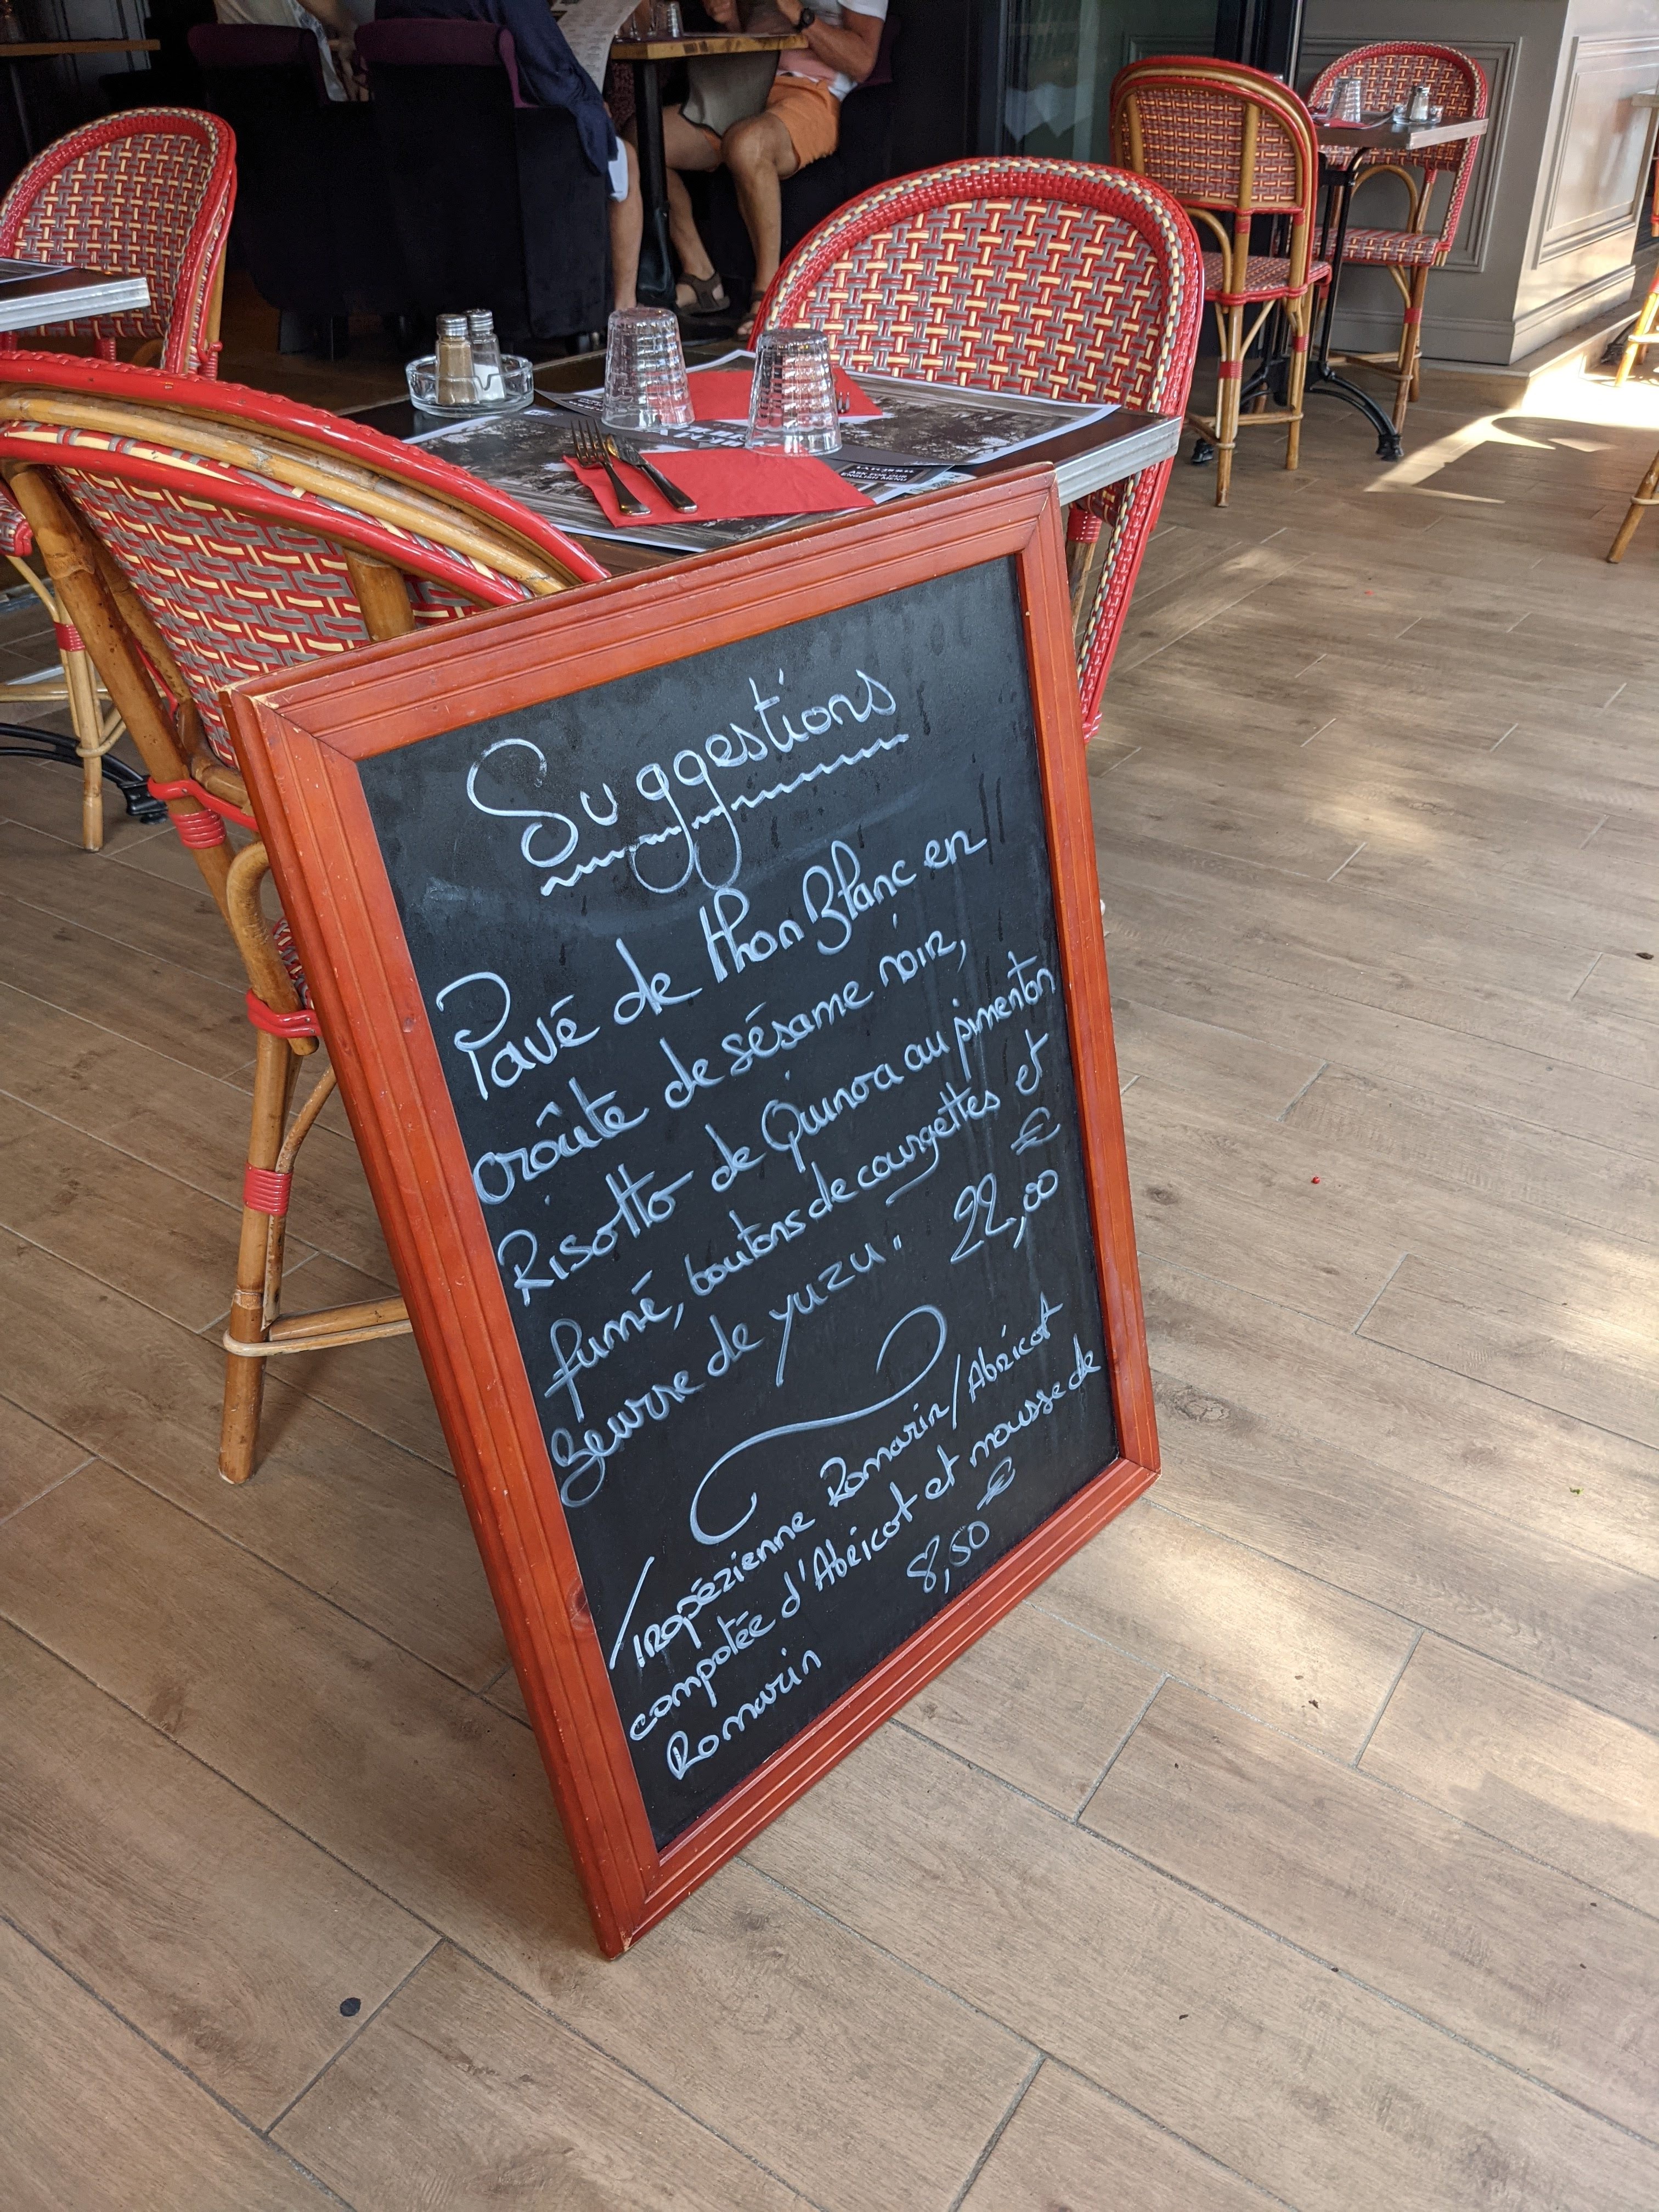 Suggestions
Pavé de thon Blanc en
croûte de sésame noir,
Risotto de Quinoa au pimenton
fumé, boutons de courgettes et
Beurre de yuzu" 22,00 €
Tropézienne Romarin/Abricot
compotée d'Abricot et mousse de
Romarin 8,50 €
ASK FOR OUR
ENGLISH MENU